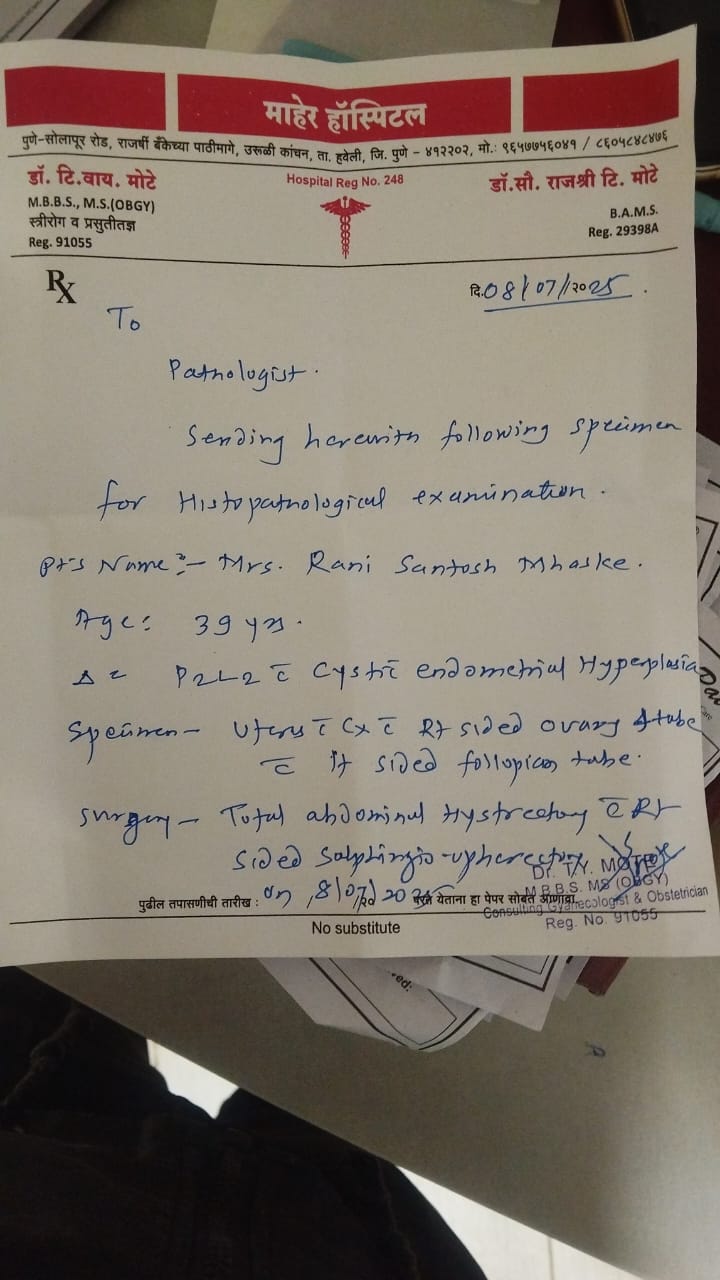 माहेर हॉस्पिटल
पुणे-सोलापूर रोड, राजर्षी बँकेच्या पाठीमागे, उरूळी कांचन, ता. हवेली, जि. पुणे - ४१२२०२, मो.: ९६५७७५६०४१ / ८६०५८४८४७६
डॉ. टि.वाय. मोटे
M.B.B.S., M.S.(OBGY)
स्त्रीरोग व प्रसुतीतज्ञ
Reg. 91055
Hospital Reg No. 248
डॉ.सौ. राजश्री टि. मोटे
B.A.M.S.
Reg. 29398A
Rx
दि.08/07/२०25.
To
Pathologist.
Sending herewith following specimen
for Histopathological examination.
Pt's Name:- Mrs. Rani Santosh Mhaske.
Age: 39 yrs.
Δ = P2L2 c̄ Cystic endometrial Hyperplasia
Specimen- Uterus c̄ Cx c̄ Rt sided ovary & tube
c̄ lt sided follopian tube.
Surgery- Total abdominal Hystrectomy c̄ Rt
sided Salphingio-opherectomy
on 8/07/2025
Dr. T.Y. MOTE
M.B.B.S. MS (OBGY)
Consulting Gynaecologist & Obstetrician
Reg. No. 91055
पुढील तपासणीची तारीख : परत येताना हा पेपर सोबत आणावा.
No substitute